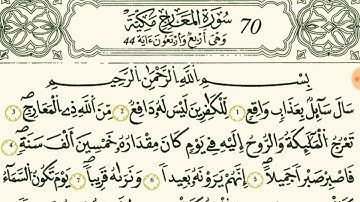 سُورَةُ المَعَارِجِ مَكِّيَّة 70
وَهِيَ أَرْبَعٌ وَأَرْبَعُونَ ءَايَة 44
بِسْمِ اللَّهِ الرَّحْمَٰنِ الرَّحِيمِ
سَالَ سَآئِلٌۢ بِعَذَابٍ وَاقِعٍ 1 لِّلْكَٰفِرِينَ لَيْسَ لَهُۥ دَافِعٌ 2 مِّنَ اللَّهِ ذِي الْمَعَارِجِ 3
تَعْرُجُ الْمَلَٰٓئِكَةُ وَالرُّوحُ إِلَيْهِ فِي يَوْمٍ كَانَ مِقْدَارُهُۥ خَمْسِينَ أَلْفَ سَنَةٍ 4
فَاصْبِرْ صَبْرًا جَمِيلًا 5 إِنَّهُمْ يَرَوْنَهُۥ بَعِيدًا 6 وَنَرَىٰهُ قَرِيبًا 7 يَوْمَ تَكُونُ السَّمَآءُ